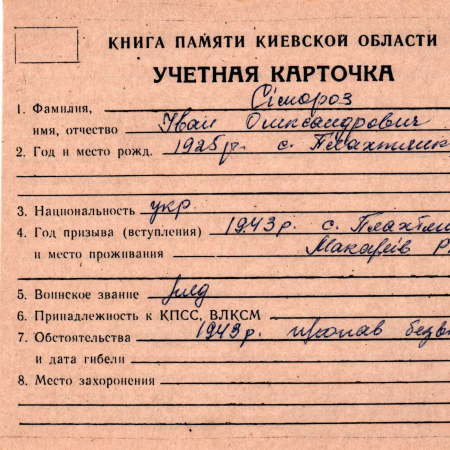 КНИГА ПАМЯТИ КИЕВСКОЙ ОБЛАСТИ
УЧЕТНАЯ КАРТОЧКА
1. Фамилия, Сімороз
имя, отчество Іван Олександрович
2. Год и место рожд. 1925 р. с.
3. Национальность укр
4. Год призыва (вступления) 1943 р. с.
и место проживания Макарів р
5. Воинское звание ряд
6. Принадлежность к КПСС, ВЛКСМ
7. Обстоятельства 1943 р. пропав безв
и дата гибели
8. Место захоронения